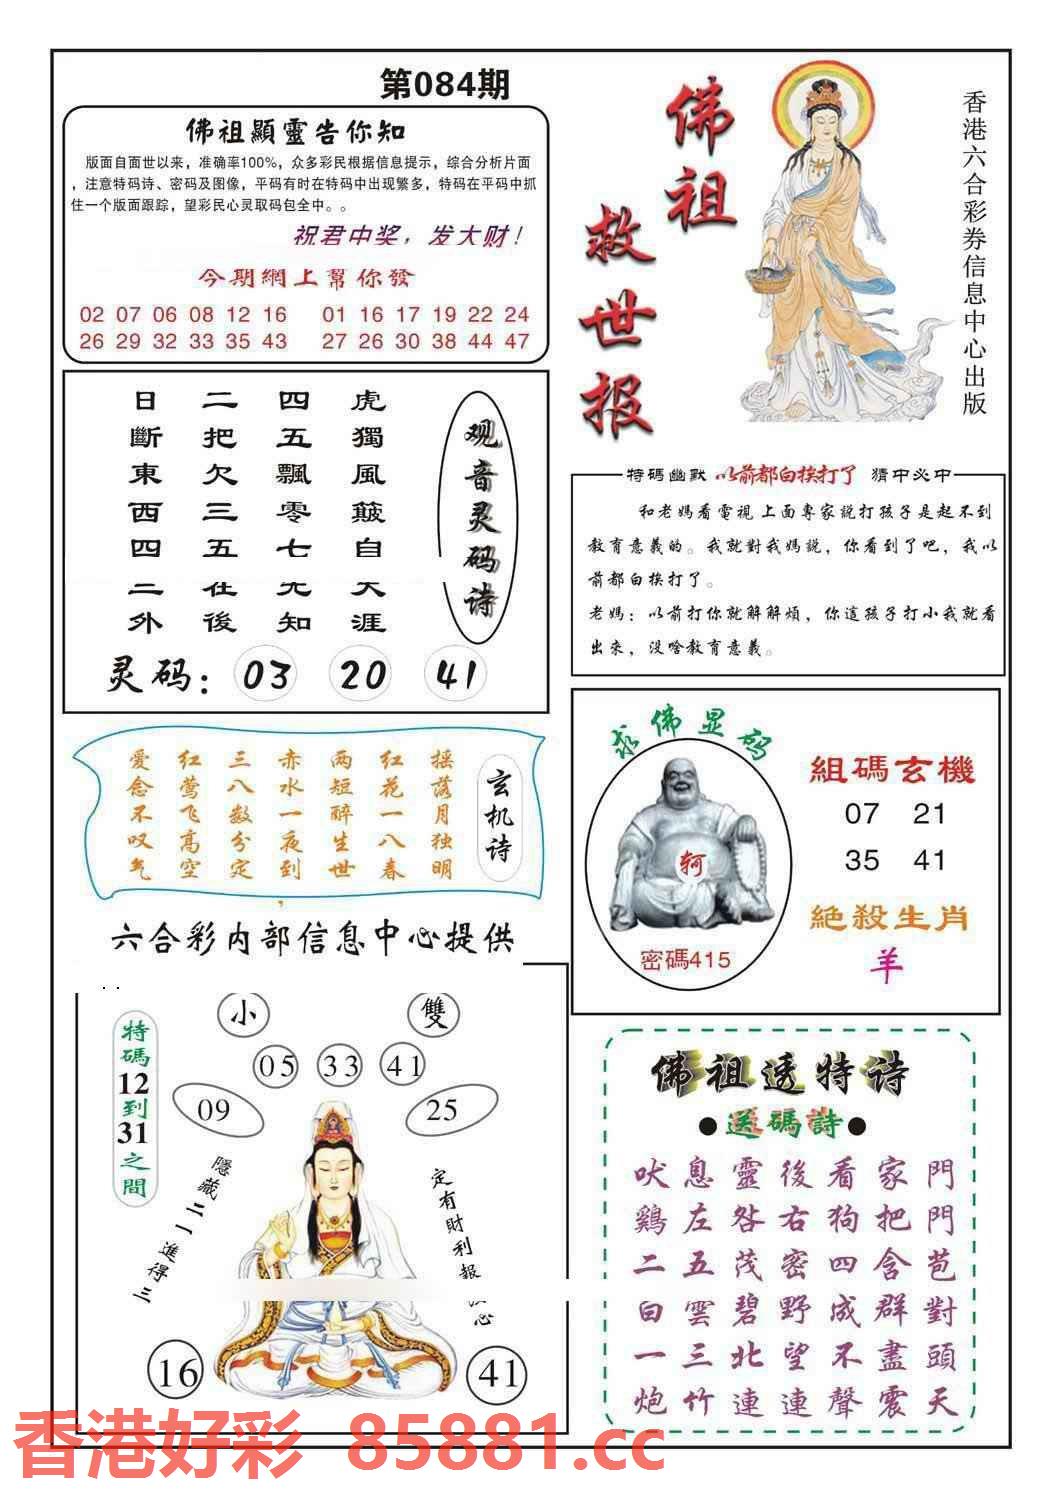 第084期
佛祖顯靈告你知
版面自面世以来，准确率100%，众多彩民根据信息提示，综合分析片面
，注意特码诗、密码及图像，平码有时在特码中出现繁多，特码在平码中抓
住一个版面跟踪，望彩民心灵取码包全中。。
祝君中奖，发大财！
今期網上幫你發
02 07 06 08 12 16 01 16 17 19 22 24
26 29 32 33 35 43 27 26 30 38 44 47
佛祖
救世报
香港六合彩券信息中心出版
日二四虎
斷把五獨
東欠飄風
西三零皺
四五七自
二在先天
外後知涯
观音灵码诗
灵码：03 20 41
特碼幽默 以前都白挨打了 猜中必中
和老媽看電視上面專家説打孩子是起不到
教育意義的。我就對我媽説，你看到了吧，我以
前都白挨打了。
老媽：以前打你就解解煩，你這孩子打小我就看
出來，没啥教育意義。
爱红三赤两红摇
念莺八水短花落
不飞数一醉一月
叹高分夜生八独
气空定到世春明
玄机诗
六合彩内部信息中心提供
求佛显码
密碼415
組碼玄機
07 21
35 41
絶殺生肖
羊
小 雙
特碼12到31之間
05 33 41
09 25
隱藏二一進得三
定有財利報
16 41
佛祖透特诗
●送碼詩●
吠息靈後看家門
鷄左咎右狗把門
二五茂密四含苞
白雲碧野成群對
一三北望不盡頭
炮竹連連聲震天
香港好彩 85881.cc